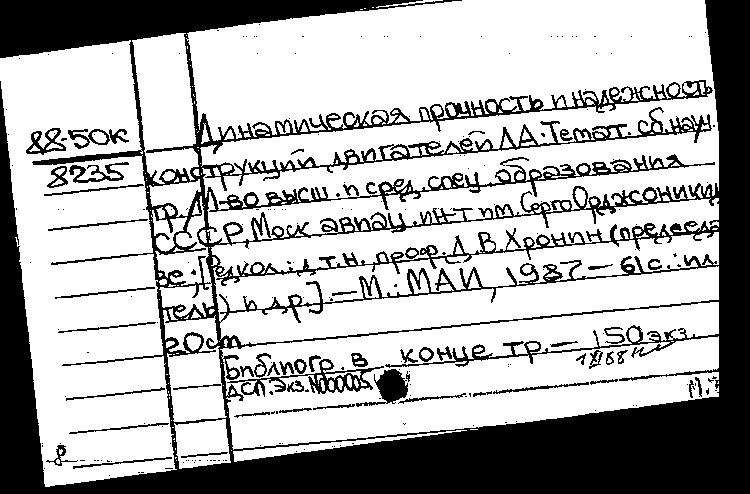 88-50к
8235
Динамическая прочность и надежность
конструкций двигателей ЛА: Темат. сб. науч.
тр. / М-во высш. и сред. спец. образования
СССР, Моск авиац. ин-т им. Серго Орджоникид
зе; [Редкол.: д.т.н., проф. Д. В. Хронин (председа
тель) и др.]. — М.: МАИ, 1987. — 61 с.: ил.
20 см.
Библиогр. в конце тр. — 150 экз.
ДСП. Экз. N00005.